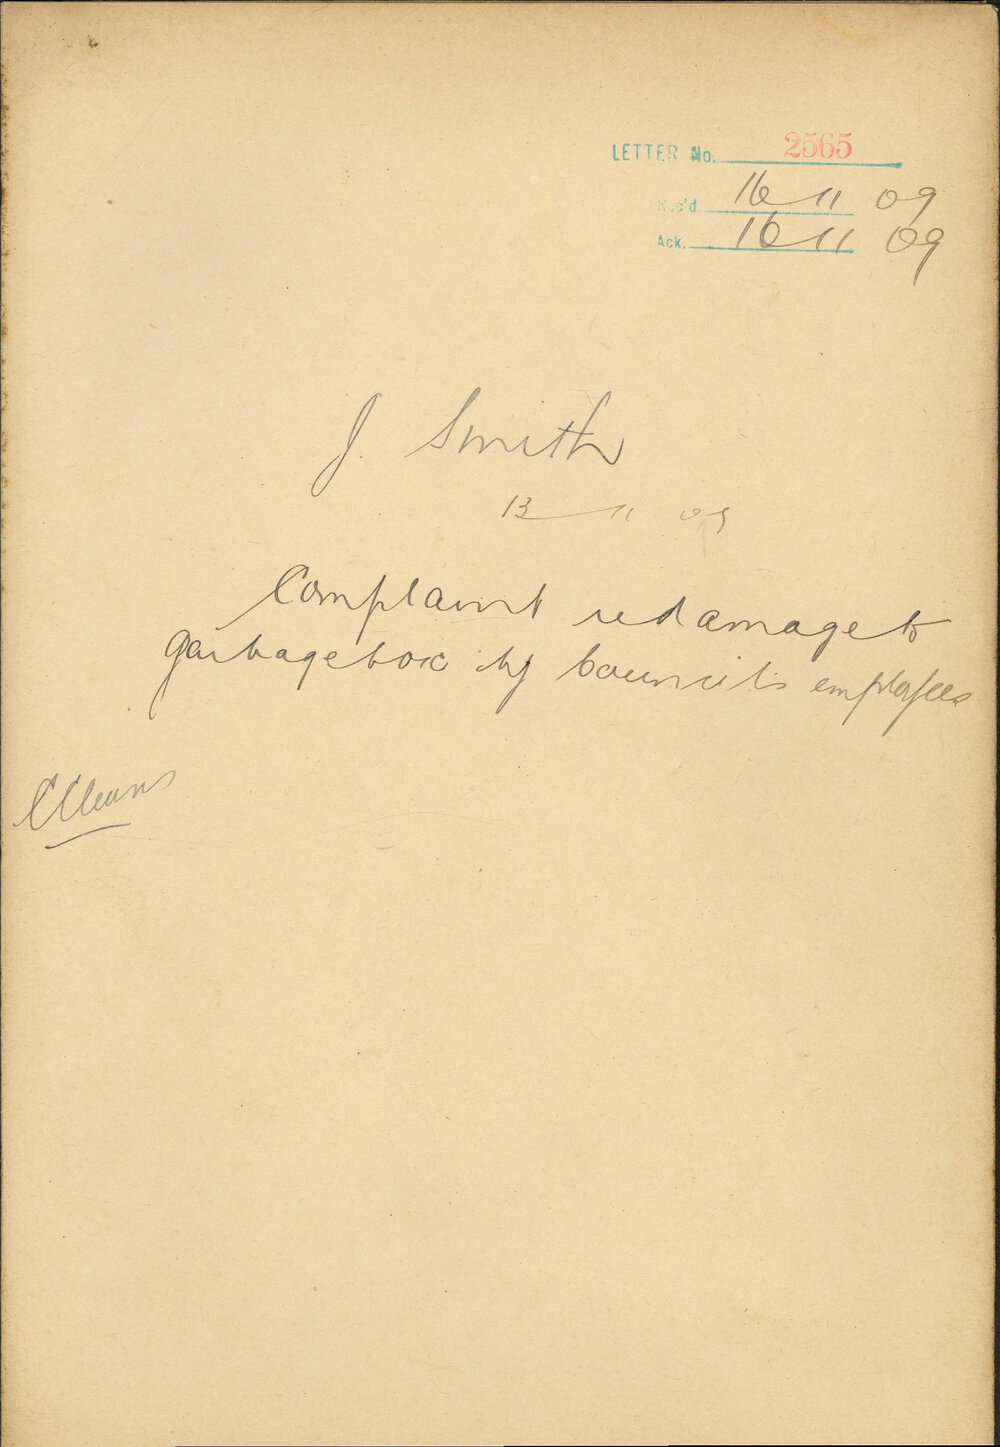 LETTER No. 2565
Rec'd 16 11 09
Ack. 16 11 09
J. Smith
13 11 09
Complaint re damage to
garbage box by Council's employees